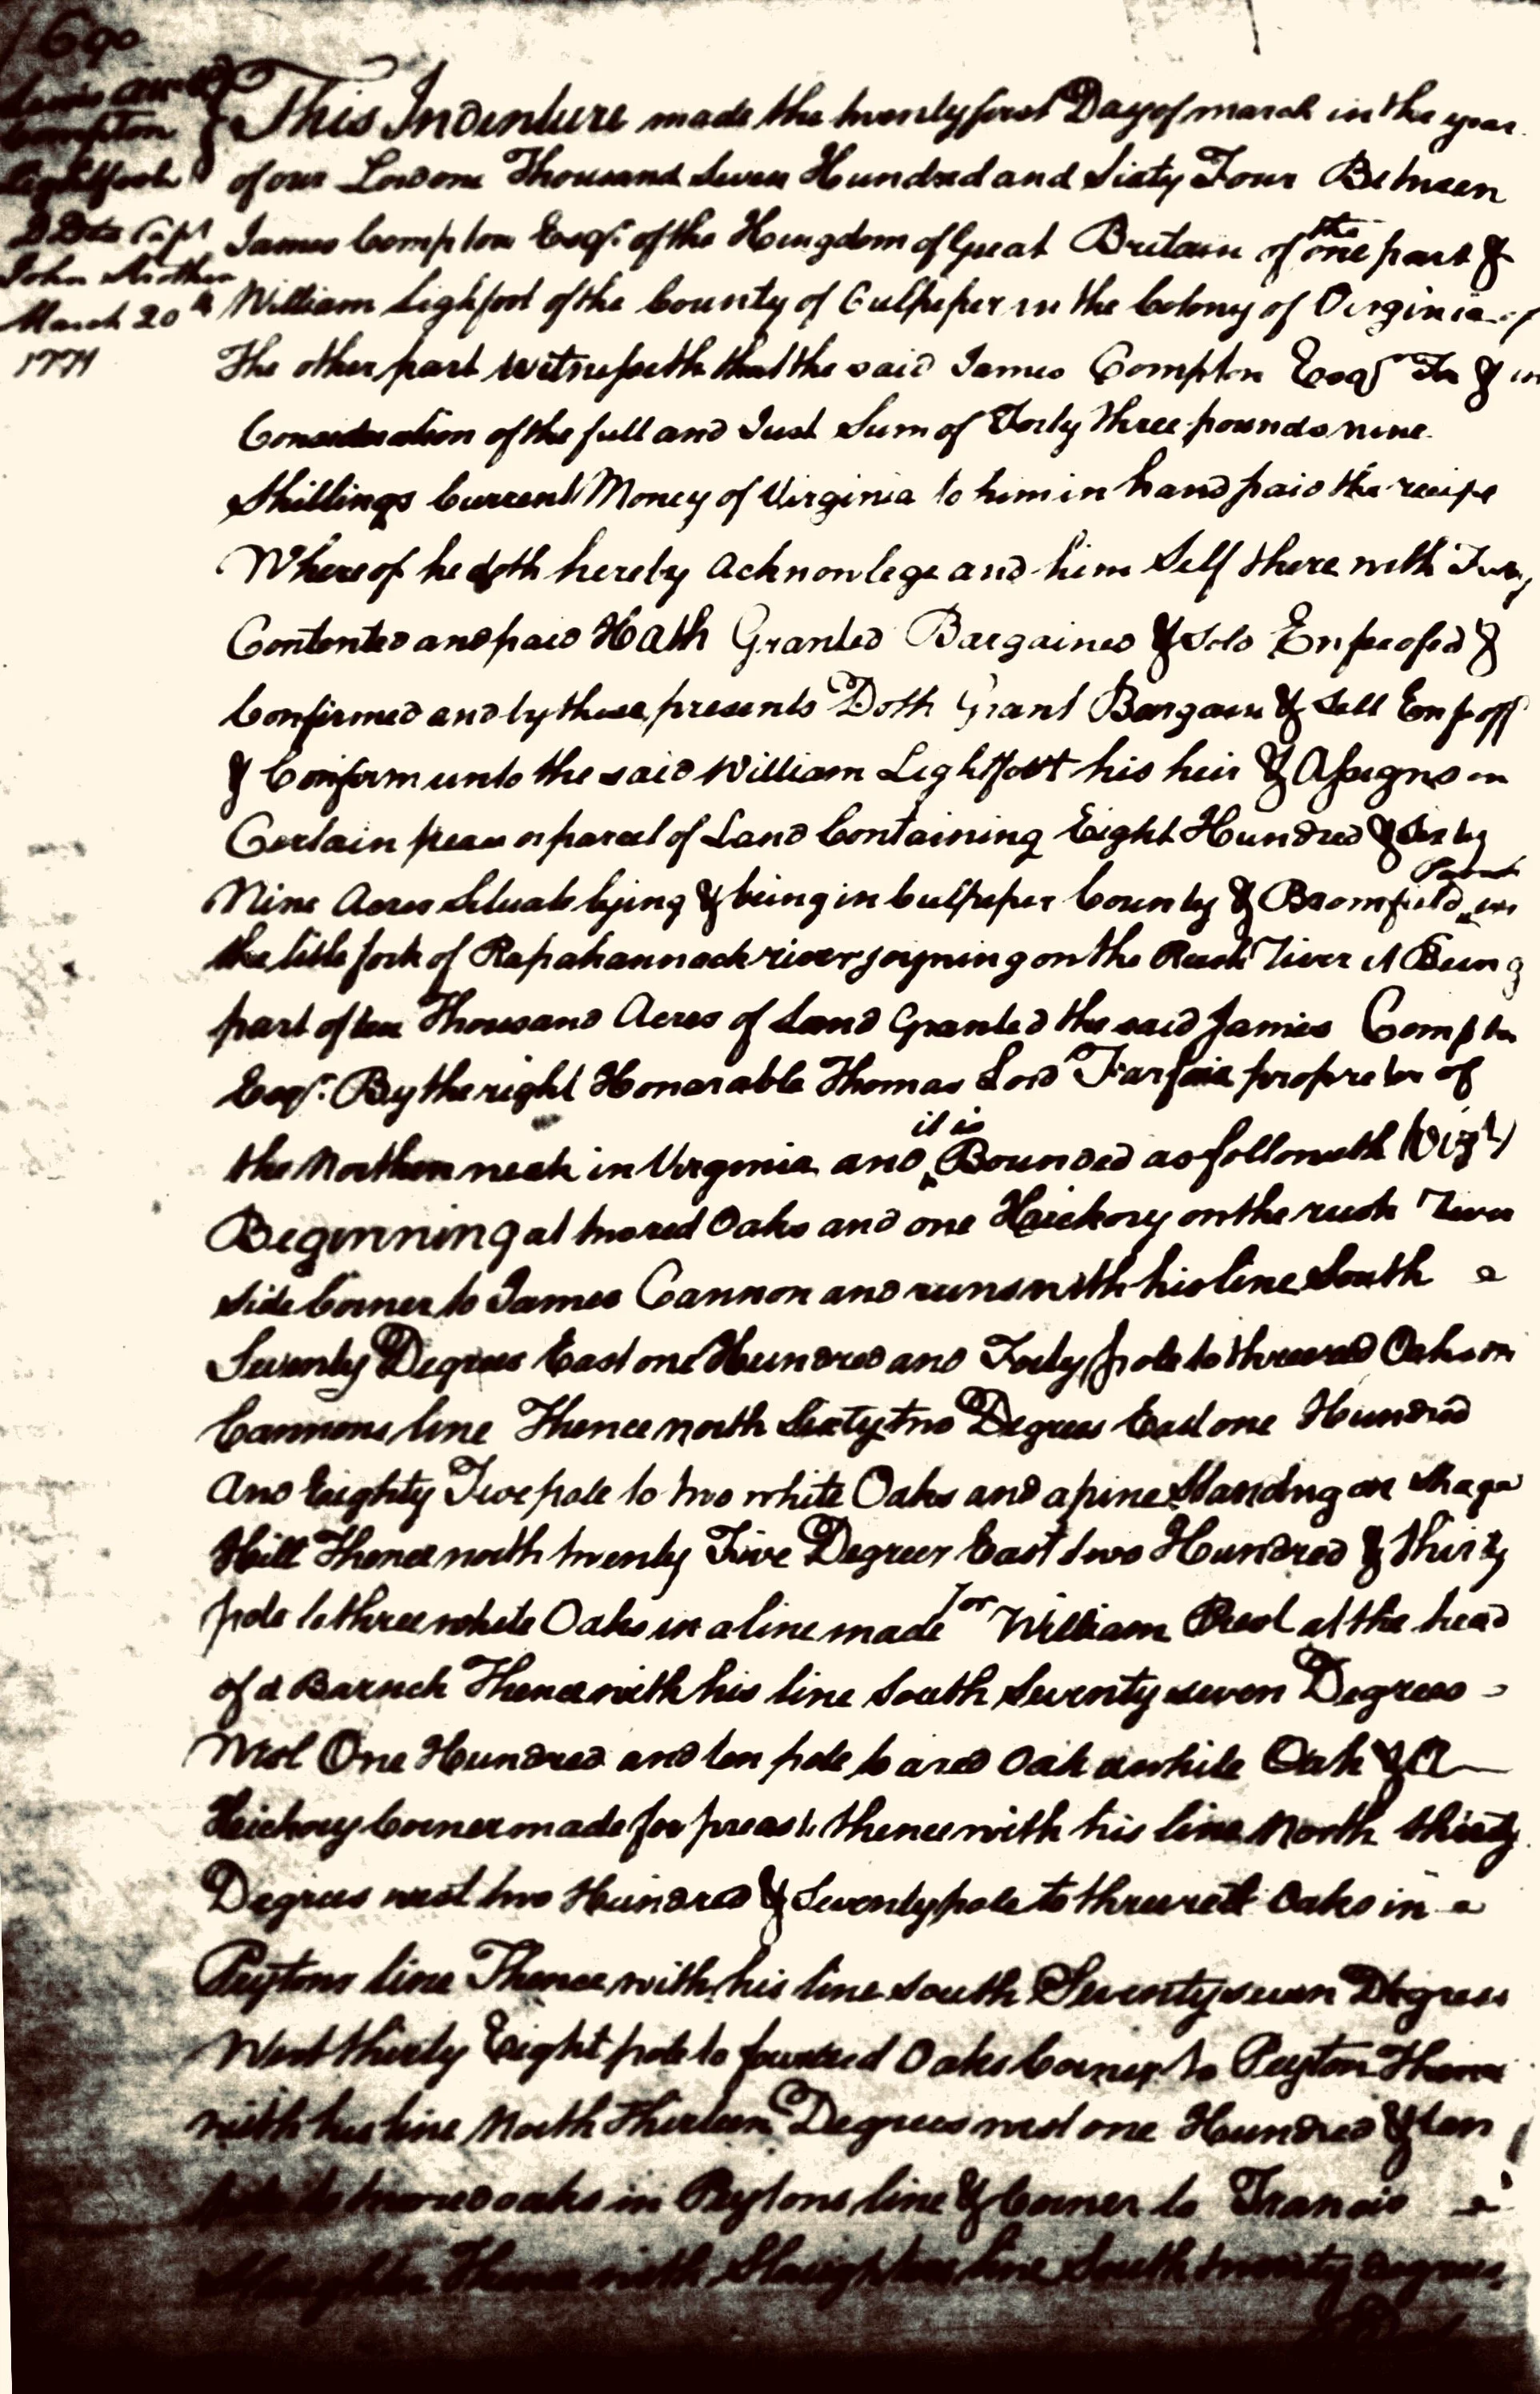 690
Compton
Lightfoot
DDta Capt
John Strother
March 20th
1774
This Indenture made the twenty first Day of march in the year
of our Lord one Thousand Seven Hundred and Sixty Four Between
James Compton Esqr. of the Kingdom of Great Britain of the one part &
William Lighfoot of the County of Culpeper in the Colony of Virginia of
The other part witnesseth that the said James Compton Esqr For & in
Consideration of the full and Just Sum of Forty three pounds nine
Shillings Current Money of Virginia to him in hand paid the recipt
Whereof he doth hereby acknowlege and him Self there with Fully
Contented and paid Hath Granted Bargained & Sold Enfeofed &
Confirmed and by these presents Doth Grant Bargain & Sell Enfeoff
& Confirm unto the said William Lightfoot his heir & Assigns on
Certain peace or parcel of Land Containing Eight Hundred & Sixty
Nine Acres Situate lying & being in Culpeper County & Bromfield Parish in
the litle fork of Rapahannock river joyning on the Rush River it Being
part of ten Thousand Acres of Land Granted the said James Compton
Esqr. By the right Honarable Thomas Lord Farfax propretor of
the Northen neck in Virginia and it is Bounded as followeth (Vizt)
Beginning at two red Oaks and one Heickory on the rush River
side Corner to James Cannon and runs with his line South
Seventy Degrees East one Hundred and Forty pole to three red Oaks on
Cannons line Thence north Sixty two Degrees East one Hundred
And Eighty Five pole to two white Oaks and a pine Standing on
Hill Thence north twenty Five Degrees East two Hundred & thirty
pole to three white Oaks in a line made for William at the head
of a Thence with his line South Seventy seven Degrees
West One Hundred and ten pole to a red Oak a white Oak & A
Heickory Corner made for thence with his line North thirty
Degrees west two Hundred & Seventy pole to three red Oaks in
Peytons line Thence with his line South Seventy seven Degrees
West thirty Eight pole to four red Oaks Corner to Peyton Thence
with his line North Thirteen Degrees west one Hundred & ten
pole to two red oaks in Peytons line & Corner to Francis
Slaughter Thence with Slaughters line South twenty degrees